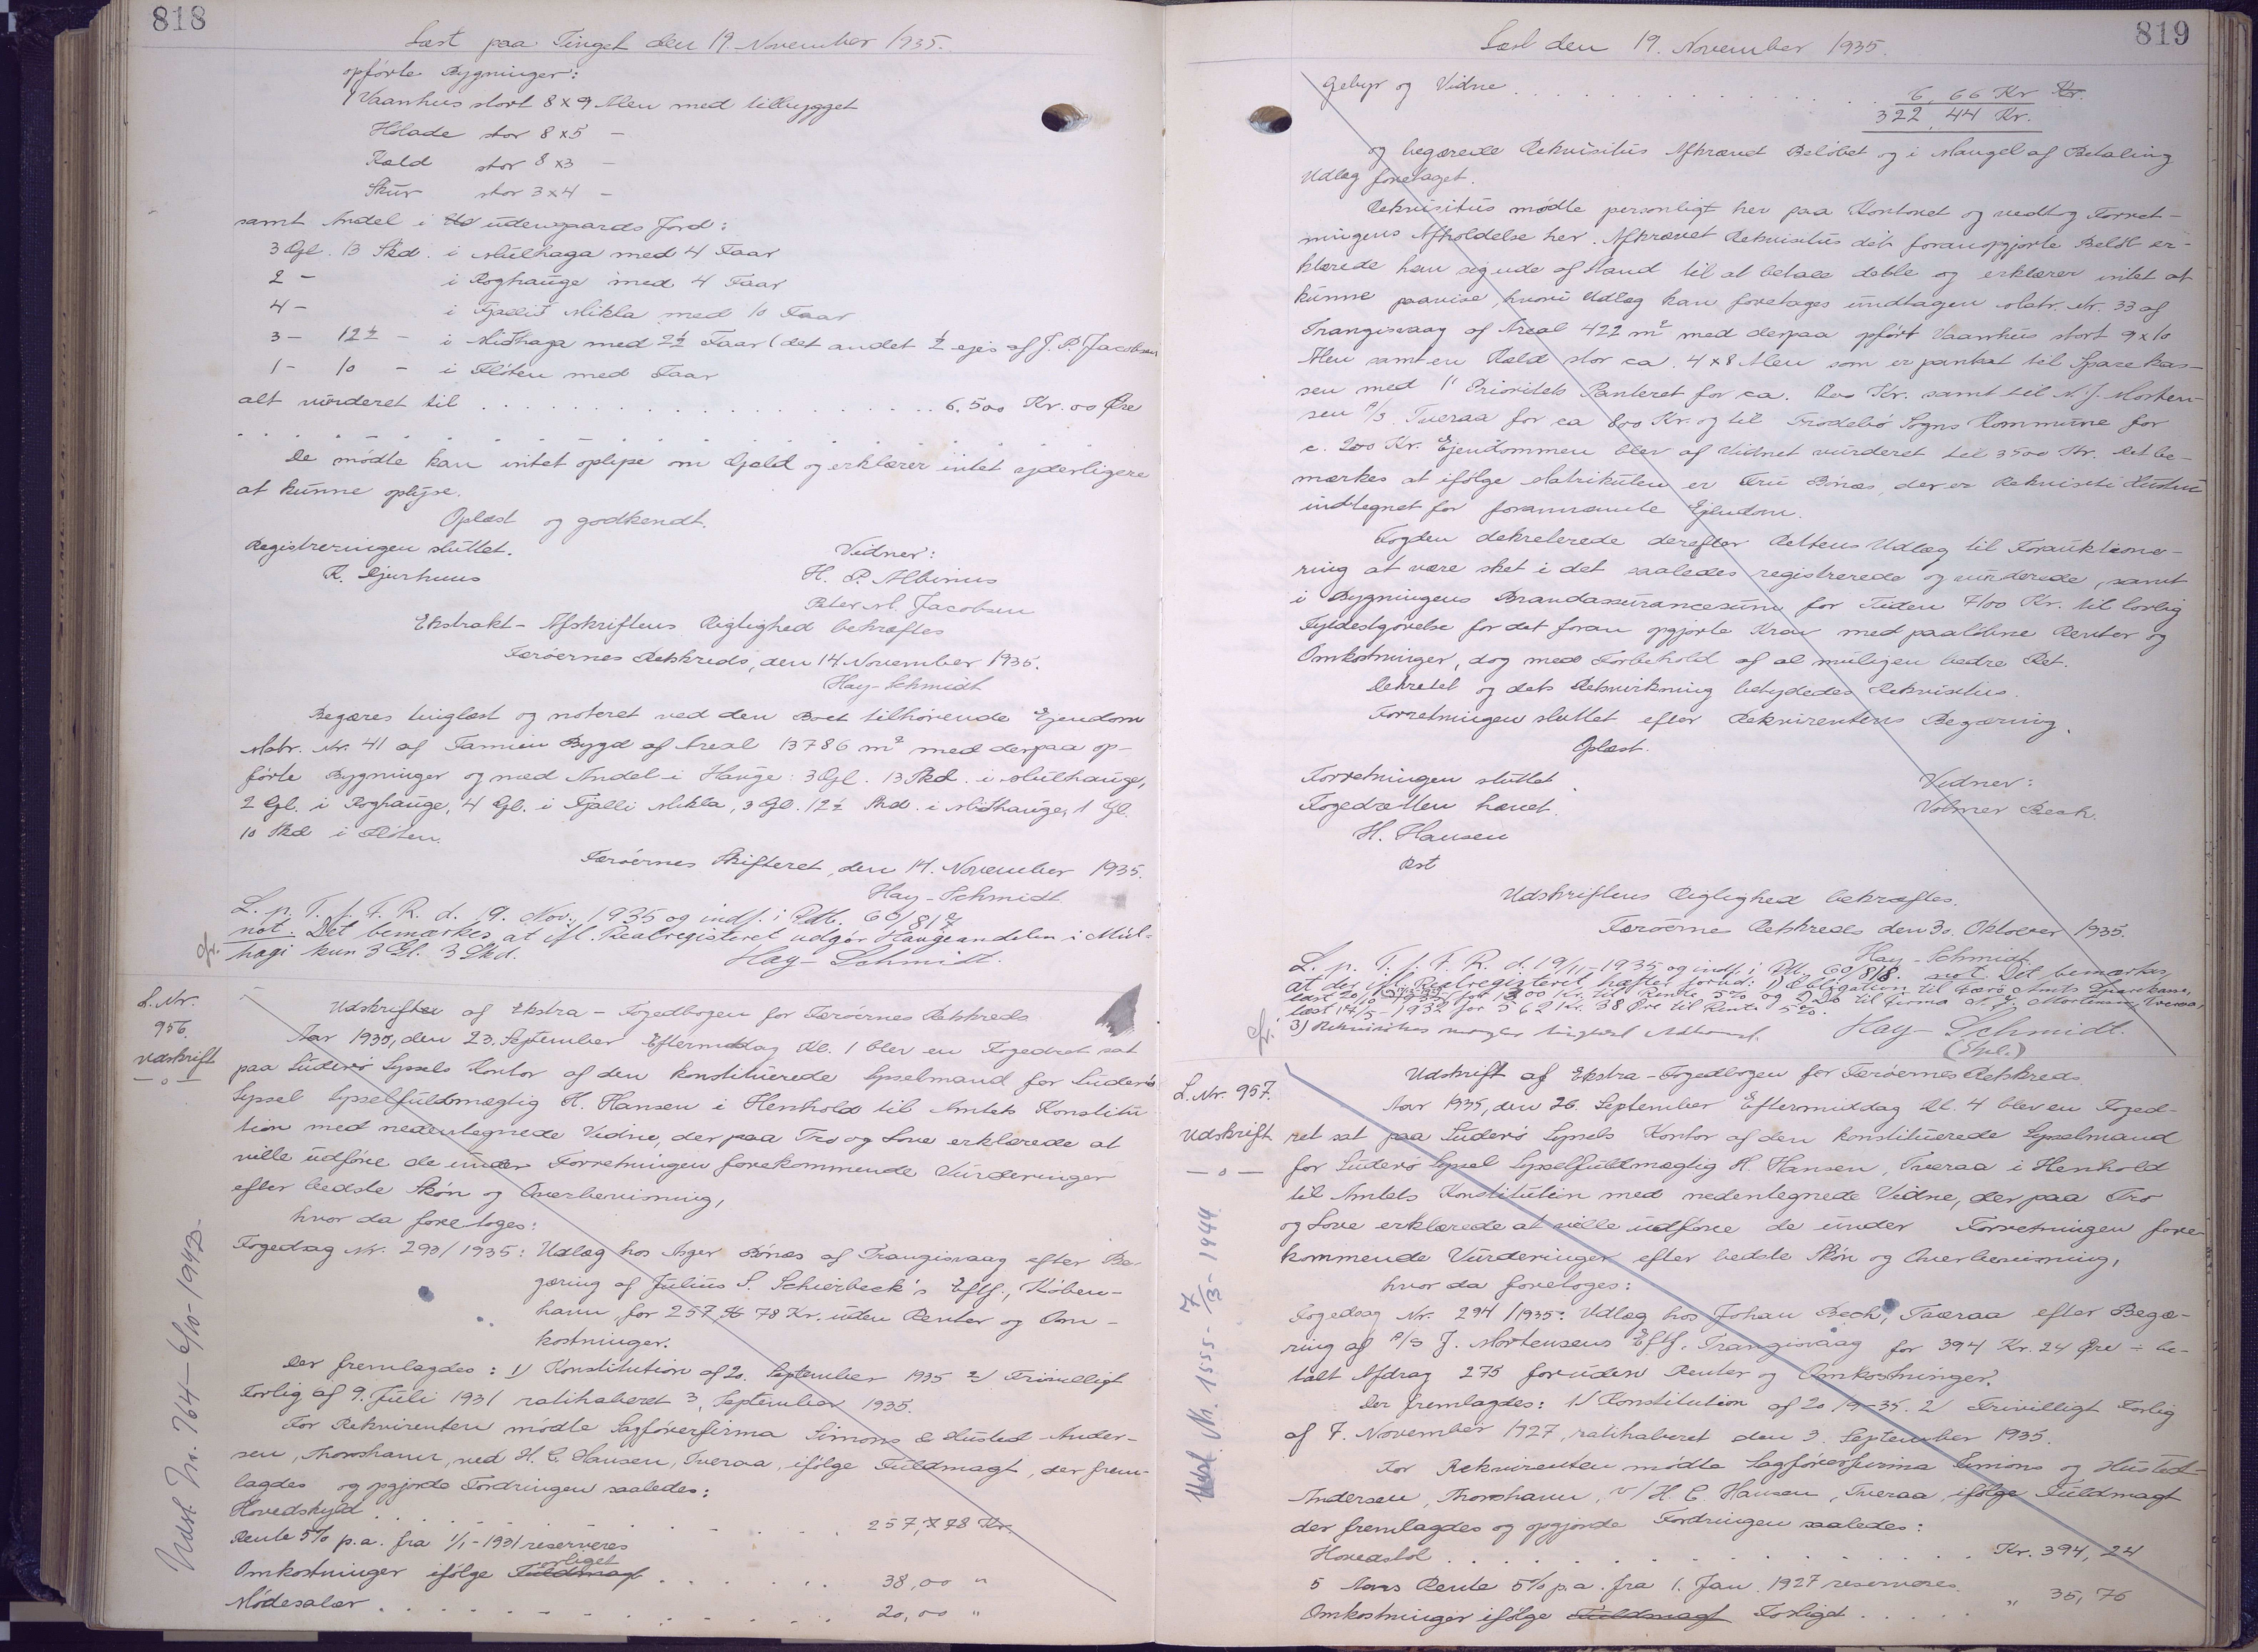 818
Læst paa Tinget den 19. November 1935.
opførte Bygninger:
1 Vaanhus stort 8 x 9 Alen med tilbygget
Hølade stor 8 x 5 -
Kæld stor 8 x 3 -
Skur stor 3 x 4 -
samt Andel i udengaards Jord:
3 Gl. 13 Skd. i Mulhaga med 4 Faar
2 - i Roghauge med 4 Faar
4 - i Fjalli Mikla med 10 Faar
3 - 12½ - i Miðhaga med 2½ Faar (det andet ½ ejes af J. P. Jacobsen
1 - 10 - i Fløten med Faar
alt vurderet til . . . . . 6.500 Kr. 00 Øre
De mødte kan intet oplyse om Gæld og erklærer intet yderligere
at kunne oplyse.
Oplæst og godkendt.
Registreringen sluttet.
Vidner:
R. Djurhuus
H. P. Albinus
Peter M. Jacobsen
Ekstrakt-Afskriftens Rigtighed bekræftes
Færøernes Retskreds, den 14 November 1935.
Hay-Schmidt
Begæres tinglæst og noteret ved den Boet tilhørende Ejendom
Matr. Nr. 41 af Famien Bygd af Areal 13786 m² med derpaa op-
førte Bygninger og med Andel i Hauge: 3 Gl. 13 Skd. i Mulhauge,
2 Gl. i Roghauge, 4 Gl. i Fjalli Mikla, 3 Gl. 12½ Skd. i Miðhauge, 1 Gl.
10 Skd i Fløten.
Færøernes Skifteret, den 14. November 1935.
Hay-Schmidt.
L. p. T. f. F. R. d. 19. Nov. 1935 og indf. i Ptb. 60/817
not. Det bemærkes, at ifl. Realregisteret udgør Haugeandelen i Múl-
hagi kun 3 Gl. 3 Skd.
Hay-Schmidt.
L. Nr.
956.
Udskrift
—o—
Udskrift af Ekstra-Fogedbogen for Færøernes Retskreds
Aar 1935, den 23. September Eftermiddag Kl. 1 blev en Fogedret sat
paa Suderø Syssels Kontor af den konstituerede Sysselmand for Suderø
Syssel Sysselfuldmægtig H. Hansen i Henhold til Amtets Konstitu
tion med nedentegnede Vidne, der paa Tro og Love erklærede at
ville udføre de under Forretningen forekommende Vurderinger
efter bedste Skøn og Overbevisning,
hvor da foretoges:
Fogedsag Nr. 293/1935: Udlæg hos Asger Bønæs af Trangisvaag efter Be-
gæring af Julius S. Schierbeck's Eftf., Køben-
havn for 257, 78 Kr. uden Renter og Om-
kostninger.
Der fremlagdes: 1) Konstitution af 20. September 1935 2) Frivilligt
Forlig af 9. Juli 1931 ratihaberet 3. September 1935.
For Rekvirenten mødte Sagførerfirma Simons & Husted-Ander-
sen, Thorshavn, ved H. C. Hansen, Tveraa, ifølge Fuldmagt, der frem-
lagdes og opgjorde Fordringen saaledes:
Hovedskyld . . . . . 257, 78 Kr.
Rente 5% p.a. fra 1/1-1931 reserveres
Omkostninger ifølge Fuldmagt orliget . . . . . 38,00 "
Mødesalær . . . . . 20,00 "
Udsl. Nr. 764 - 6/10-1943-
819
Læst den 19. November 1935.
Gebyr og Vidne . . . . . 6, 66 Kr Kr.
322, 44 Kr.
og begærede Rekvisitus Afkrævet Beløbet og i Mangel af Betaling
Udlæg foretaget.
Rekvisitus mødte personligt her paa Kontoret og vedtog Forret-
ningens Afholdelse her. Afkrævet Rekvisitus det foranopgjorte Beløb er-
klærede han sig ude af Stand til at betale dette og erklærer intet at
kunne paavise, hvori Udlæg kan foretages undtagen Matr. Nr. 33 af
Trangisvaag af Areal 422 m² med derpaa opført Vaanhus stort 9 x 10
Alen samt en Kæld stor ca. 4 x 8 Alen som er pantsat til Sparekas-
sen med 1' Prioritets Panteret for ca. Kr. samt til N. J. Morten-
sen A/S. Tveraa for ca 800 Kr. og til Frodebø Sogns Kommune for
c. 200 Kr. Ejendommen blev af Vidnet vurderet til 3500 Kr. Det be-
mærkes at ifølge Matrikulen er Fru Bønæs, der er Rekvisiti Hustru
indtegnet for forannævnte Ejendom.
Fogden dekreterede derefter Rettens Udlæg til Forauktione-
ring at være sket i det saaledes registrerede og vurderede, samt
i Bygningens Brandassurancesum for Tiden 7100 Kr. til lovlig
Fyldestgørelse for det foran opgjorte Krav med paaløbne Renter og
Omkostninger, dog med Forbehold af al muligen bedre Ret.
Dekretet og dets Retsvirkning betydedes Rekvisitus.
Forretningen sluttet efter Rekvirentens Begæring.
Oplæst.
Forretningen sluttet.
Vidner:
Fogedretten hævet.
Volmer Beck.
H. Hansen
kst
Udskriftens Rigtighed bekræftes.
Færøerne Retskreds den 30. Oktober 1935.
Hay-Schmidt.
L. p. T. f. F. R. d. 19/11-1935 og indf. i Ptb. 60/818. not. Det bemærkes,
at der ifl. Realregisteret hæfter forud: 1) Obligation til Færø Amts Sparekasse,
læst 20/10 for Kr. til Rente 5% og 2) Do til Firma N. J. Mortensen, Tveraa,
læst 14/5-1932 for 562 Kr. 38 Øre til Rente 5%.
3) Rekvisitus mangler tinglæst Adkomst.
Hay-Schmidt.
(Stpl.)
L. Nr. 957.
Udskrift
—o—
Udskrift af Ekstra-Fogedbogen for Færøernes Retskreds.
Aar 1935, den 26. September Eftermiddag Kl. 4 blev en Foged-
ret sat paa Suderø Syssels Kontor af den konstituerede Sysselmand
for Suderø Syssel Sysselfuldmægtig H. Hansen, Tveraa i Henhold
til Amtets Konstitution med nedentegnede Vidne, der paa Tro
og Love erklærede at ville udføre de under Forretningen fore-
kommende Vurderinger efter bedste Skøn og Overbevisning,
hvor da foretoges:
Fogedsag Nr. 294/1935: Udlæg hos Johan Beck, Tværaa efter Begæ-
ring af A/S J. Mortensens Eftf. Trangisvaag for 394 Kr. 24 Øre ÷ be-
talt Afdrag 275 foruden Renter og Omkostninger.
Der fremlagdes: 1) Konstitution af 20/9-35. 2) Frivilligt Forlig
af 7. November 1927, ratihaberet den 3. September 1935.
For Rekvirenten mødte Sagførerfirma Simons og Husted-
Andersen, Thorshavn, v/ H. C. Hansen, Tveraa, ifølge Fuldmagt
der fremlagdes og opgjorde Fordringen saaledes:
Hovedstol . . . . . Kr. 394, 24
5 Aars Rente 5% p.a. fra 1. Jan. 1927 reserveres.
Omkostninger ifølge Fuldmagt Forliget . . . . . " 35, 76
Udsl. Nr. 1555 - 7/3 - 1944.